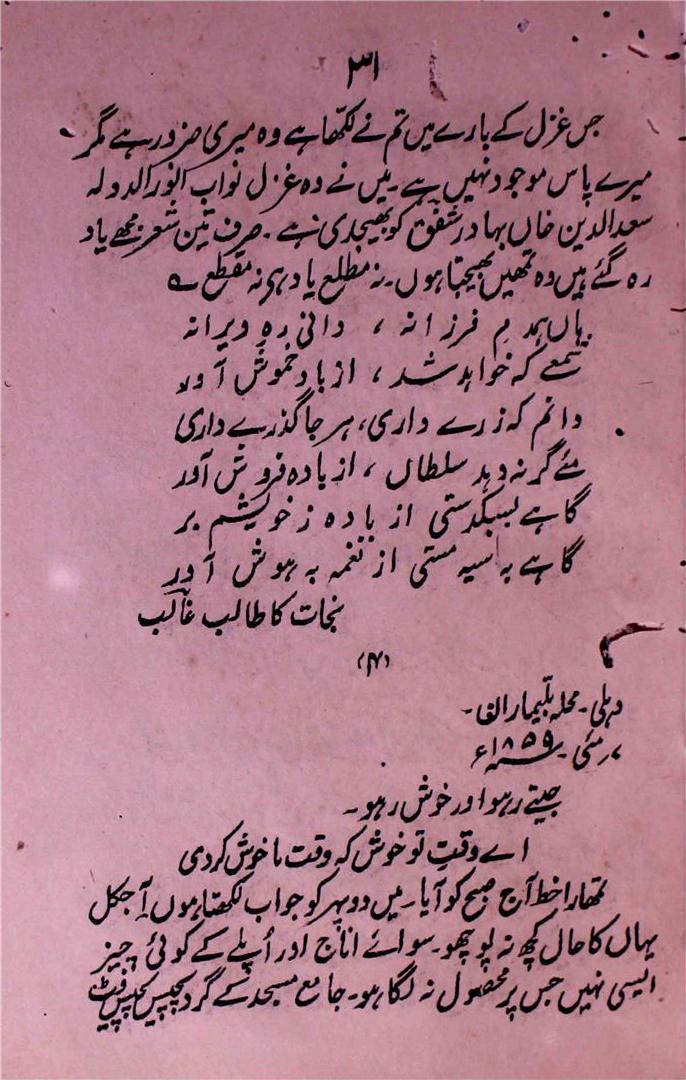 ۳۱
جس غزل کے بارے میں تم نے لکھا ہے وہ میری ضرور ہے مگر
میرے پاس موجود نہیں ہے۔ میں نے وہ غزل نواب انور الدولہ
سعد الدین خاں بہادر شفق کو بھیجدی ہے۔ صرف تین شعر مجھے یاد
رہ گئے ہیں وہ تمھیں بھیجتا ہوں۔ نہ مطلع یاد ہی نہ مقطع ے
ہاں ہمدمِ فرزانہ ، دانی رہِ ویرانہ
شمعے کہ نخواہد شد ، از باد خموش آور
دانم کہ زرے داری، ہر جا گذرے داری
مئے گر نہ دہد سلطاں ، از بادہ فروش آور
گاہے بسبکدستی از بادہ ز خویشم بر
گاہے بہ سیہ مستی از نغمہ بہ ہوش آور
نجات کا طالب غالب
(۴)
دہلی۔ محلہ بلیماران۔
۷ مئی۔ ۱۸۵۹ء
جیتے رہو اور خوش رہو۔
اے وقتِ تو خوش کہ وقت ما خوش کردی
تمھارا خط آج صبح کو آیا۔ میں دوپہر کو جواب لکھتا ہوں۔ آجکل
یہاں کا حال کچھ نہ پوچھو۔ سوائے اناج اور اُپلے کے کوئی چیز
ایسی نہیں جس پر محصول نہ لگا ہو۔ جامع مسجد کے گرد پچیس پچیس فیٹ